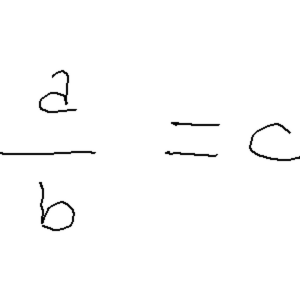 a
b
= c